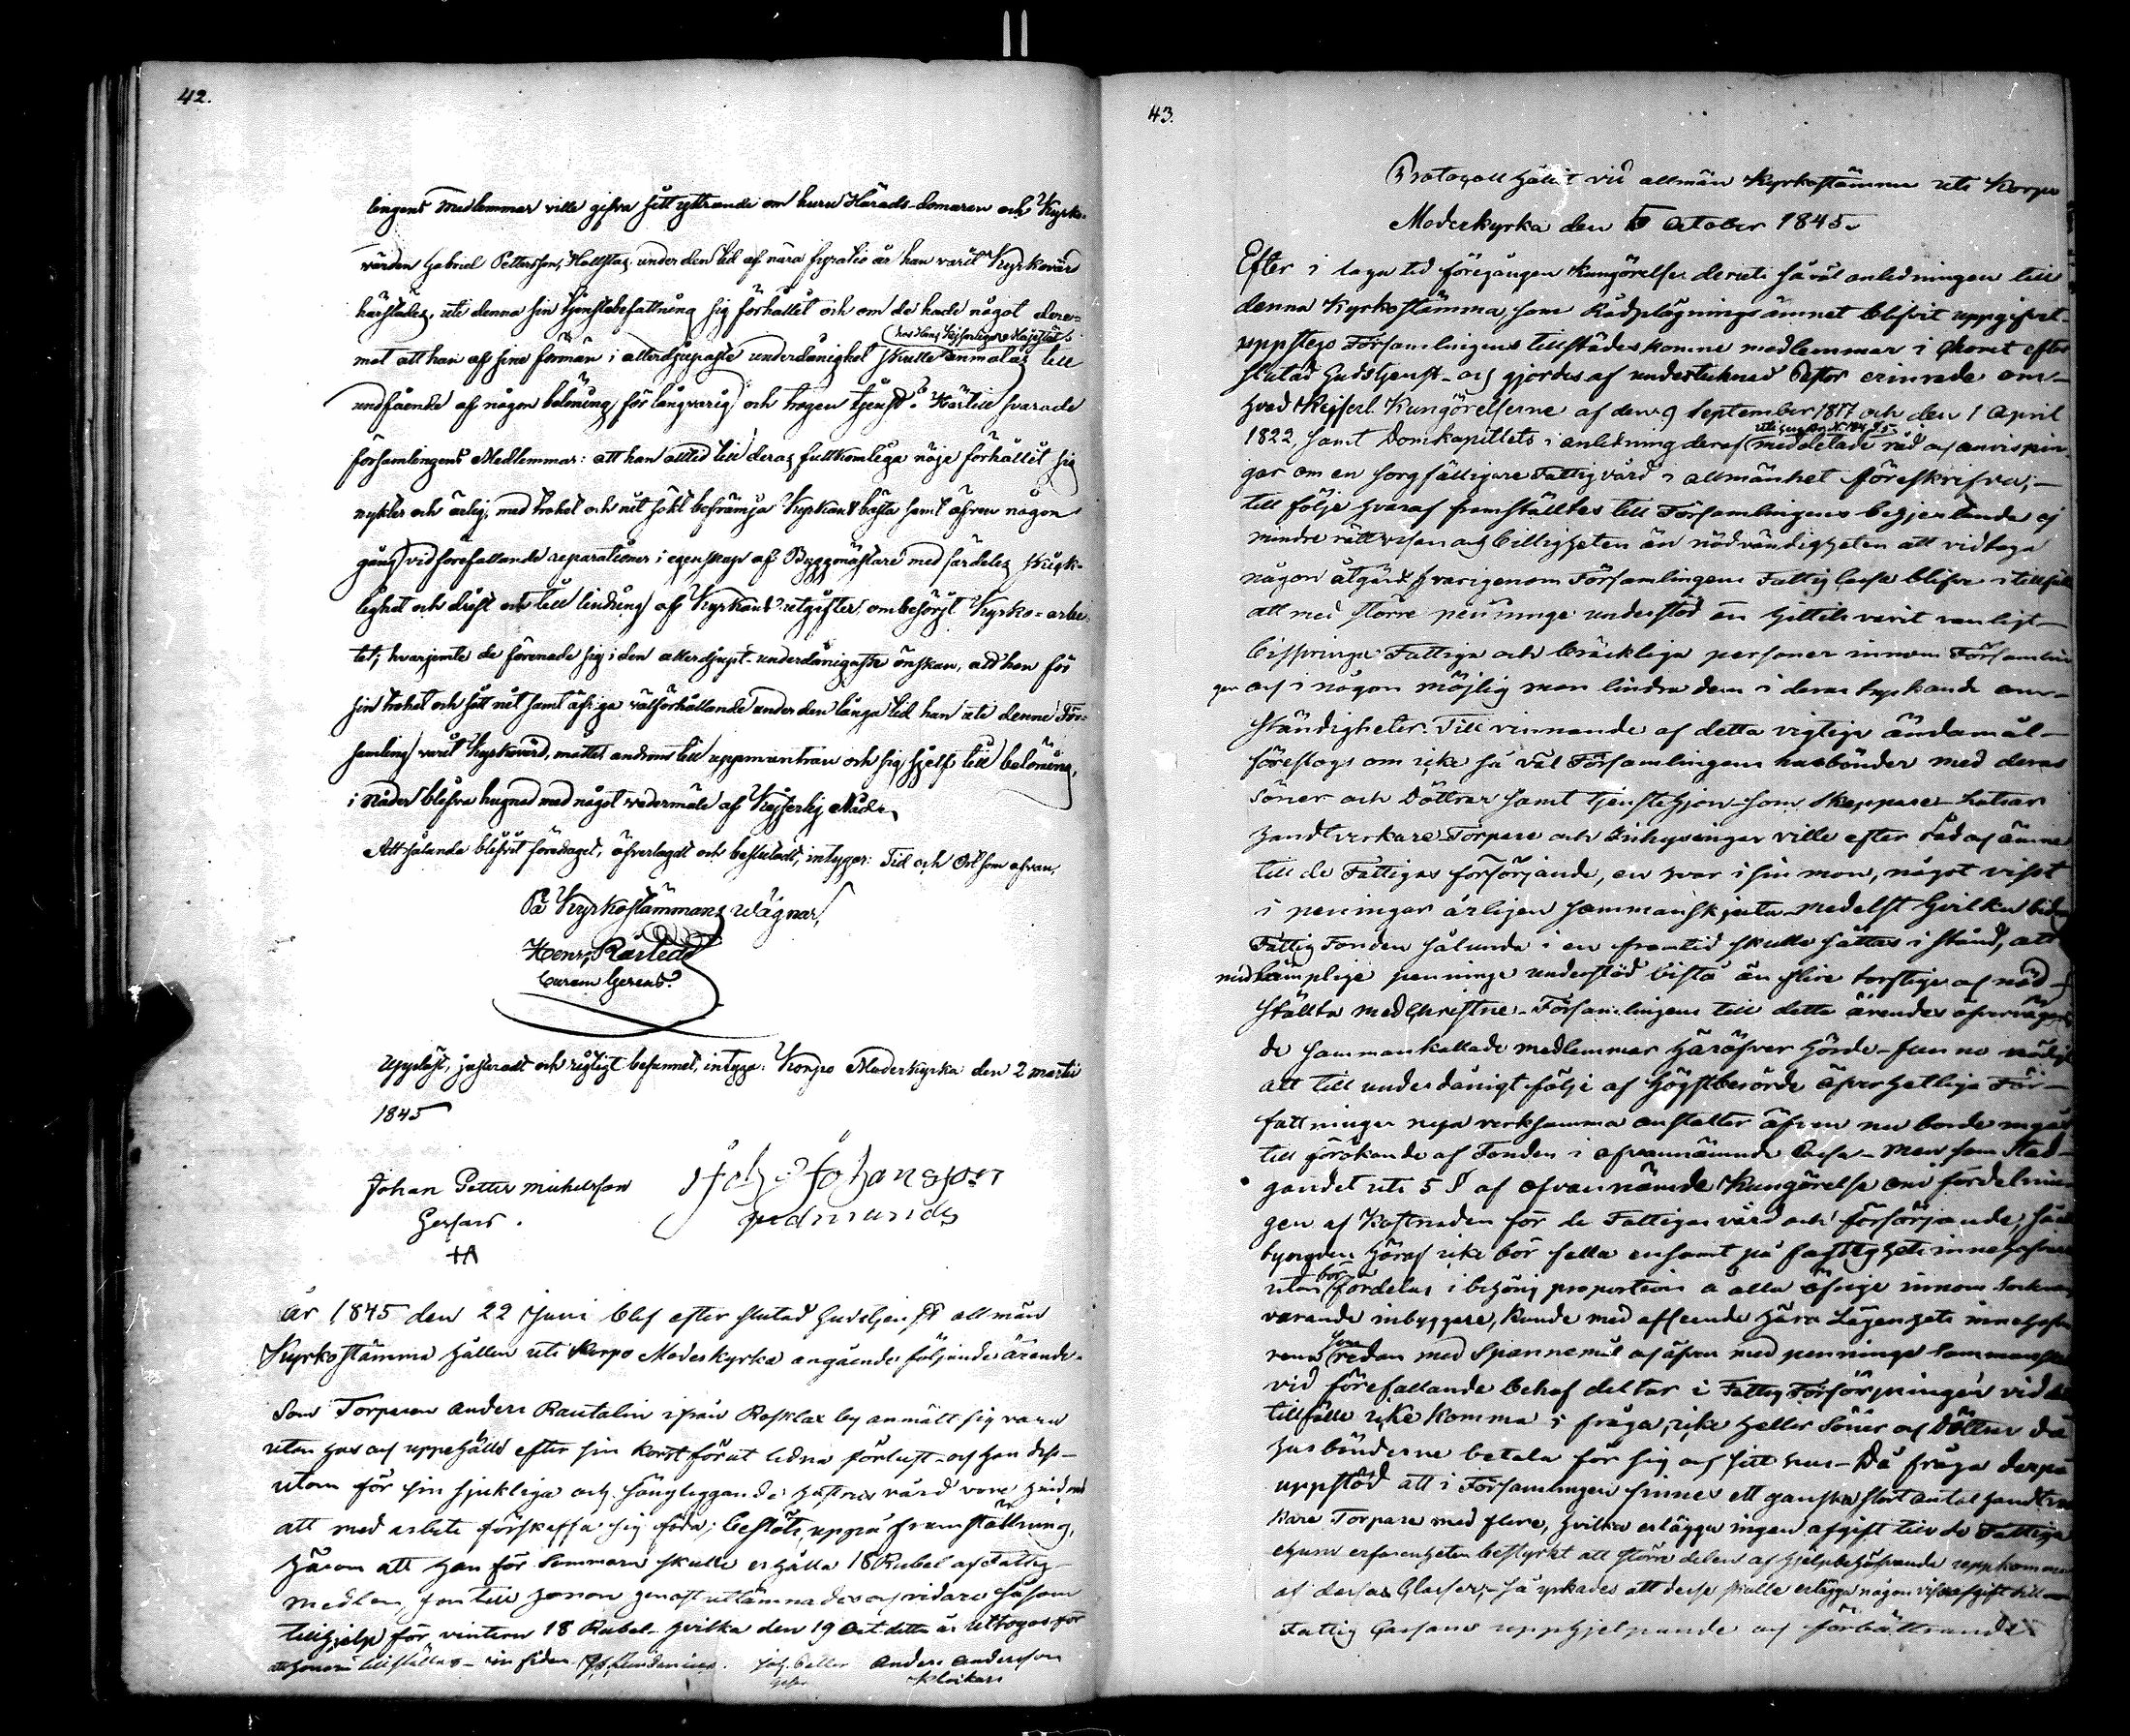 42.
lingens Medlemmar ville gifva sitt yttrande om huru Härads-domaren och Kyrko-
värden Gabriel Pettersson, Hallstas under den tid af nära fyratio år han varit Kyrkovärd
härstädes, uti denna sin tjenstebefattning sig förhållit och om de hade något dere-
hos Hans Kejserliga Majestät
mot att han af sine förmän i allerdjupaste underdånighet skulle anmälas till
undfående af någon belöning för långvarig och trogen tjenst? Härtill svarade
församlingens Medlemmar: att han alltid till deras fullkomliga nöje förhållit sig
nykter och ärlig, med trohet och nit sökt befrämja Kyrkans bästa samt äfven någon
gång vid förefallande reparationer i egenskap af Byggmästare med särdeles skick-
lighet och drift och till lindring af Kyrkans utgifter ombesörjt Kyrko-arbe-
tet; hvarjemte de förenade sig i den allerdjupt-underdånigaste önskan, att han för
sin trohet och sitt nit samt öfriga välförhållande under den långa tid han uti denne För-
samling varit Kyrkovärd, måtte, androm till uppmuntran och sig sjelf till belöning,
i Nåder blifva hugnad med något vedermäle af Kejserlig Nåde.
Att sålunda blifvit föredraget, öfverlagdt och beslutadt, intygar: Tid och Ort som ofvan.
På Kyrkostämmans vägnar,
Henr.
Curam Gerens.
Uppläst, justeradt och rigtigt befunnet, intyga: Korpo Moderkyrka den 2 Martii
1845
Johan Petter Mickelsson Joh: Johansson
Gerfars. Gudmunds
År 1845 den 22 Juni blef efter slutad Gudstjenst allmän
Kyrkostämma hållen uti Korpo Moderkyrka angående följande ärende.
Som Torparen Anders Rautalin ifrån Rosklax by anmält sig vara
utan hus och uppehälle efter sin kort förut lidna förlust och han dess-
utom för sin sjukliga och sängliggande hustrus vård vore hindrad
att med arbete förskaffa sig föda; beslöts, uppå framställning,
härom att han för sommaren skulle erhålla 18 Rubel af Fattig-
medlen, som till honom genast utlämnades och vidare såsom
tillhjelp för vintern 18 Rubel hvilka den 19 Oct detta år uttogos för
att honom tillställas Joh. Petter Anders Andersson
Klockars
43.
Protocoll hållit vid allmän Kyrkostämma uti Korpo
Moderkyrka den 5 October 1845.
Efter i laga tid föregången kungörelse deruti såväl anledningen till
denna Kyrkostämma, som Rådplägningsämnet blifvit uppgifvit
uppstego Församlingens tillstädeskomne medlemmar i Choret efter
slutad Gudstjenst och gjordes af undertecknad Pastor erinrade om
hvad Kejserl. Kungörelserne af den 9 September 1817 och den 1 April
1822, samt Domkapitlets i anledning deraf meddelade råd och anvisnin-
gar om en sorgfälligare Fattigvård i allmänhet föreskrifva;
till följe hvaraf framställtes till Församlingens begjertande ej
mindre rättvisan och billigheten än nödvändigheten att vidtaga
någon åtgärd hvarigenom Församlingens Fattigkassa blifver i tillfälle
att med större penninge understöd än hittils varit vanligt
bispringa Fattiga och bräckliga personer innom Församlin-
gen och i någon möjlig mon lindra dem i deras tryckande om-
ständigheter. Till vinnande af detta vigtiga ändamål
föreslogs om icke så väl Församlingens husbönder med deras
söner och döttrar samt tjenstehjon som skeppare Lotsar
handtverkare Torpare och Inhysingar ville efter råd och ämne
till de Fattigas försörjande, en hvar i sin mon, något visst
i peningar årligen sammanskjuta medelst hvilka bidrag
Fattig Fonden sålunda i en framtid skulle sättas i stånd, att
med lämplige penninge understöd bistå än flere torftige och nöd-
ställta medchristne. Församlingens till detta ärendes öfvervägan-
de sammankallade medlemmar häröfver hörde funno nödigt
att till underdånigt följe af högstberörde öfverhetliga För-
fattningar nya verksamma anstalter äfven nu borde vidtagas
till förökande af Fonden i ofvannämnde Cassa. Men som Stad-
gandet uti 5 § af ofvannämde Kungörelse om fördelnin-
gen af Kostnaden för de Fattigas vård och försörjande,
tyngden häraf icke bör falla ensamt på fastighets innehafvare
utan bör fördelas i behörig proportion å alla öfrige innom Socknen
varande inbyggare, kunde med afseende häro Lägenhets innehafva-
rena som redan med Spannemål och äfven med penninge sammanskott
vid förefallande behof deltar i Fattig Försörjningen vid detta
tillfälle icke komma i fråga, icke heller Söner och Döttrar då
husbönderne betala för sig och sitt hus. Då fråga derpå
uppstod att i Församlingen finnes ett ganska stort antal handtver-
kare Torpare med flere, hvilka erlägga ingen afgift till de Fattiga
ehuru erfarenheten bestyrkt att större delen af hjelpbehöfvande uppkommer
af dessas Classer, så yrkades att desse skulle erlägga någon viss afgift till
Fattig Cassans upphjelpande och förbättrande